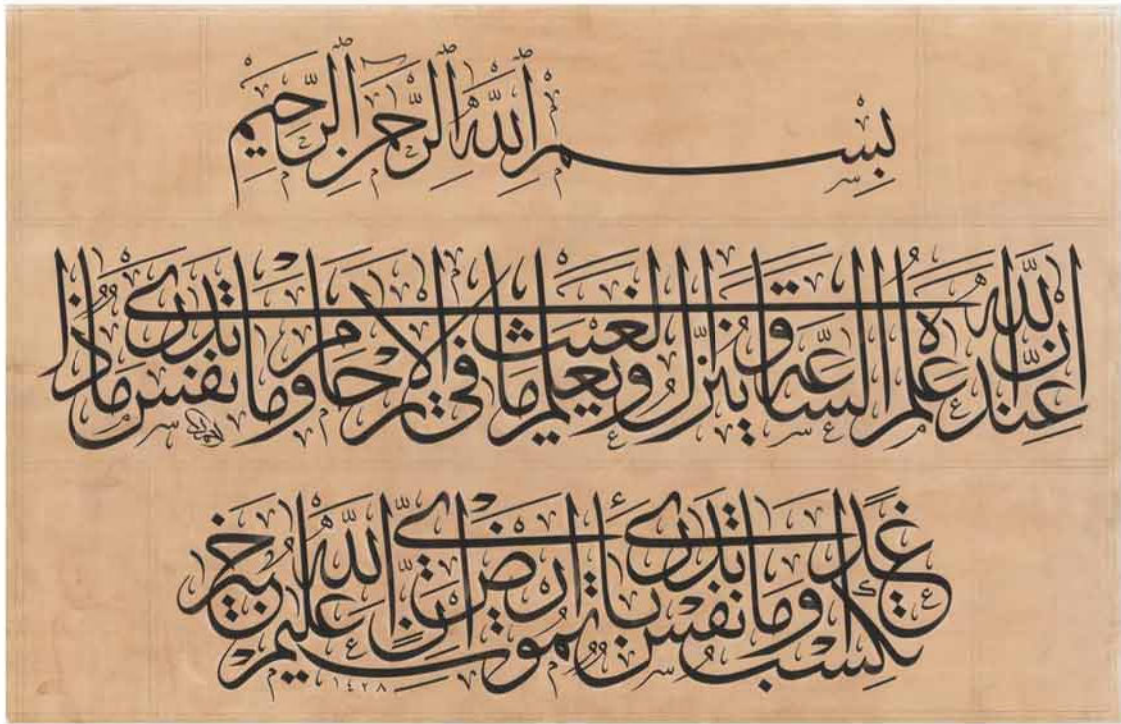 بِسْمِ ٱللَّهِ ٱلرَّحْمَٰنِ ٱلرَّحِيمِ
إِنَّ اللَّهَ عِنْدَهُ عِلْمُ السَّاعَةِ وَيُنَزِّلُ الْغَيْثَ وَيَعْلَمُ مَا فِي الْأَرْحَامِ وَمَا تَدْرِي نَفْسٌ مَاذَا
تَكْسِبُ غَدًا وَمَا تَدْرِي نَفْسٌ بِأَيِّ أَرْضٍ تَمُوتُ إِنَّ اللَّهَ عَلِيمٌ خَبِيرٌ
١٤٢٨